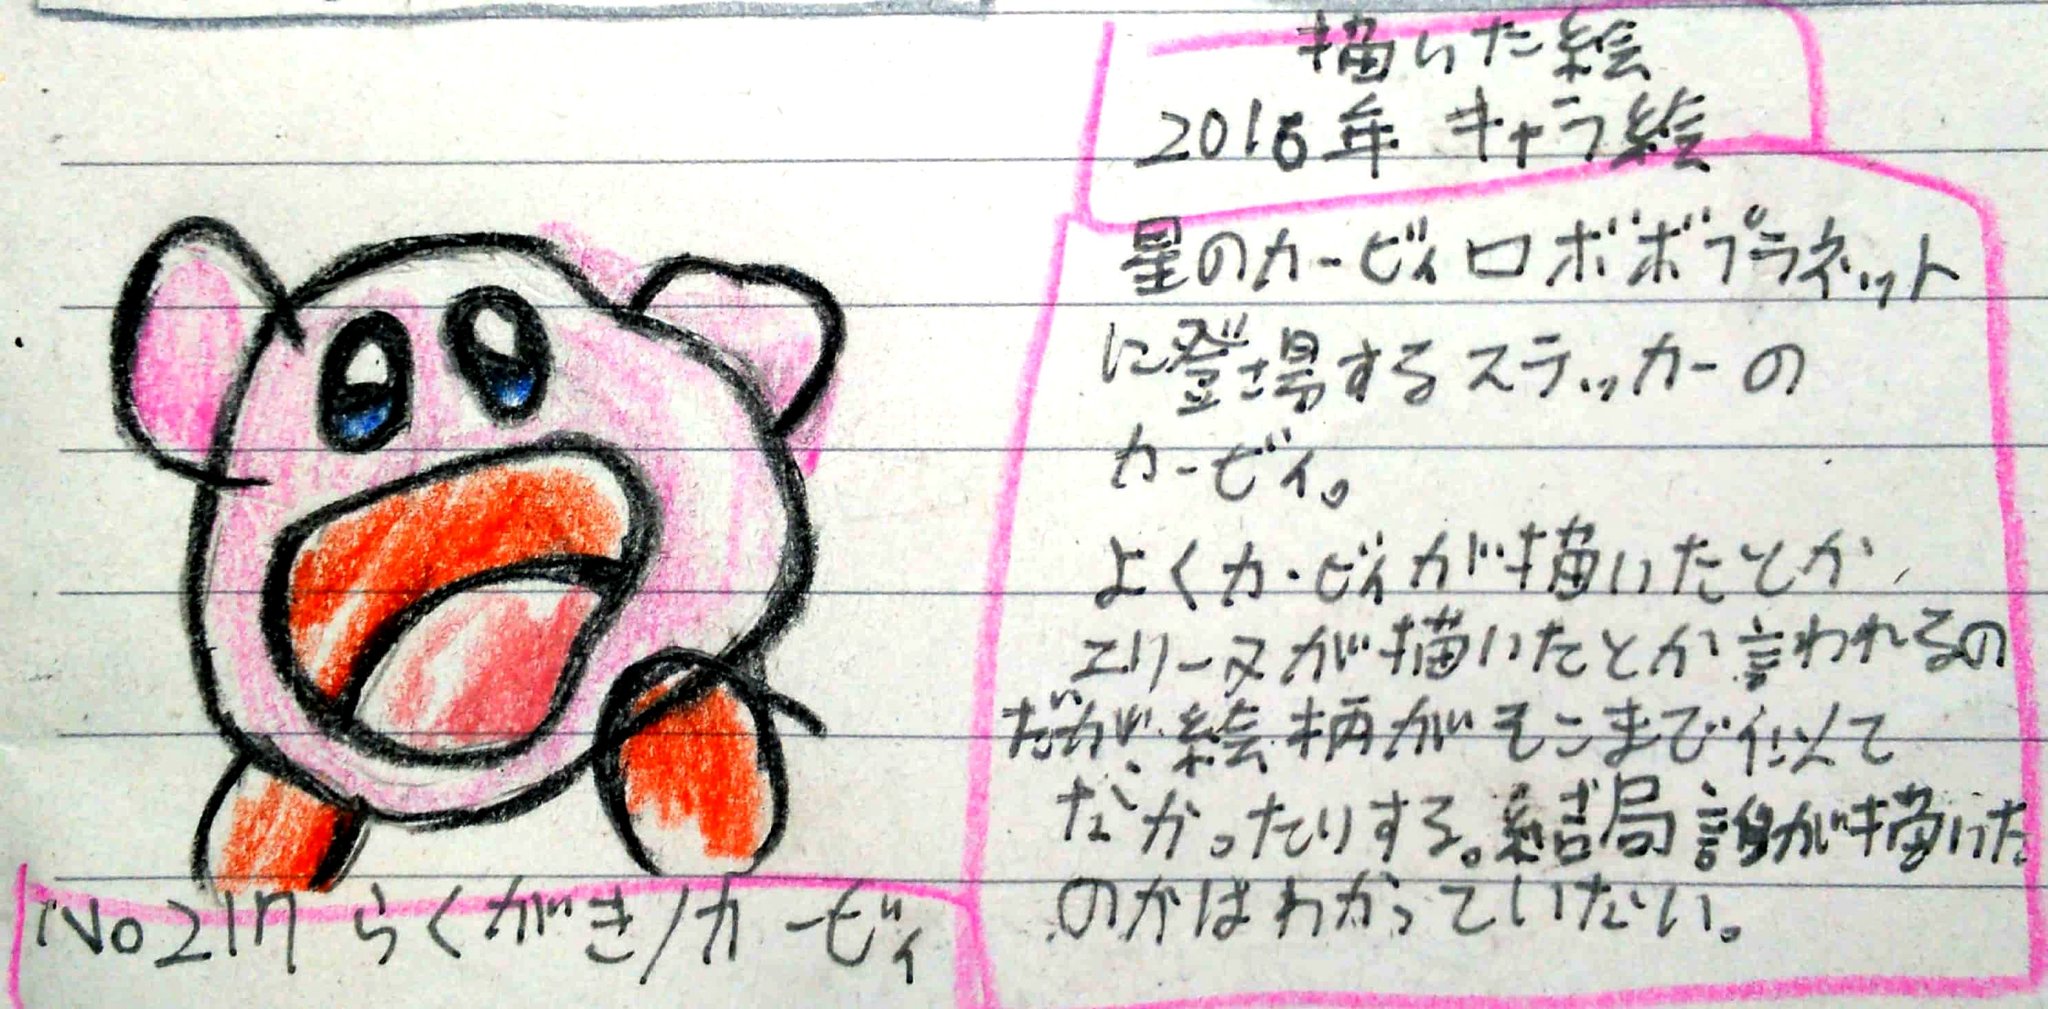 描いた絵
2016年 キャラ絵
星のカービィロボボプラネット
に登場するステッカーの
カービィ。
よくカービィが描いたとか、
エリーヌが描いたとか言われるの
だが、絵柄がそこまで似て
なかったりする。結局誰が描いた
のかはわかっていない。
No217 らくがき/カービィ